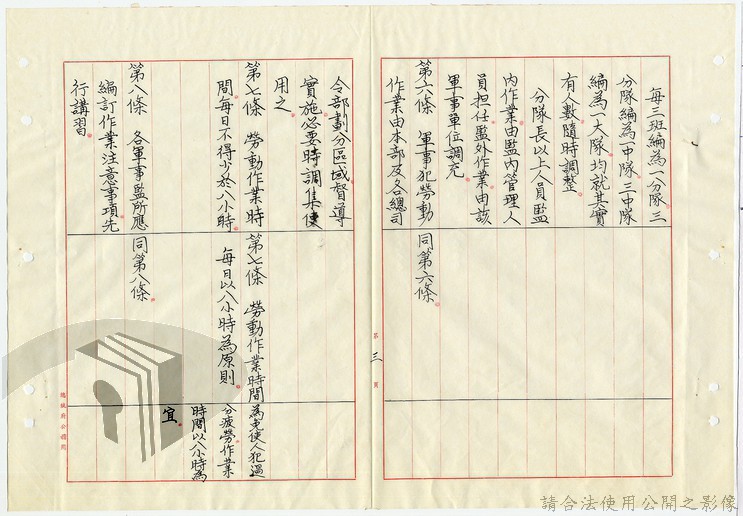 每三班編為一分隊三
分隊編為一中隊三中隊
編為一大隊均就其實
有人數隨時調整
分隊長以上人員監
內作業由監內管理人
員担任監外作業由該
軍事單位調充
第六條 軍事犯勞動
作業由本部及各總司
同第六條
第三頁
令部劃分區域督導
實施必要時調集使
用之
第七條 勞動作業時
間每日不得少於八小時
第八條 各軍事監所應
編訂作業注意事項先
行講習
第七條 勞動作業時間
每日以八小時為原則
同第八條
為免使人犯過
分疲勞作業
時間以八小時為
宜
總統府公牘用
請合法使用公開之影像